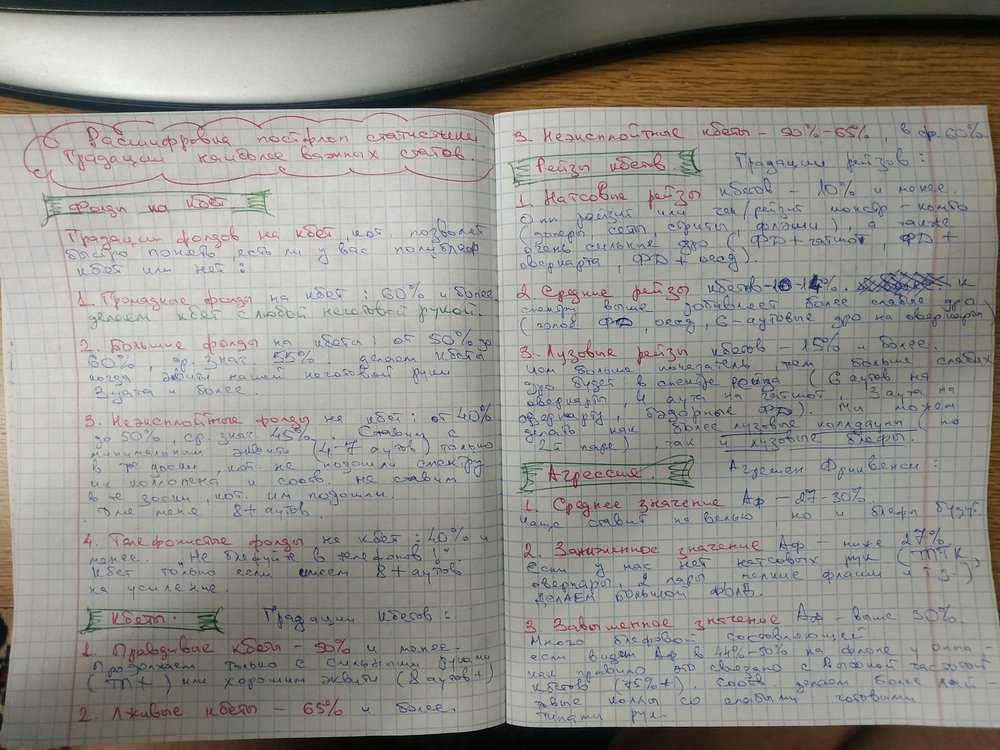 Расшифровка постфлоп статистики
Градации наиболее важных статов.
Фолды на кбет
Градации фолдов на кбет, кот. позволят
быстро понять, есть ли у вас полублеф
кбет или нет:
1. Громадные фолды на кбет: 60% и более
делаем кбет с любой неготовой рукой.
2. Большие фолды на кбеты: от 50% до
60%, ср. знач 55%. делаем кбета
когда эквити нашей неготовой руки
3 аута и более.
3. Неэксплойтные фолды на кбет: от 40%
до 50%, ср. знач 45%. Ставим с
минимальным эквити (4-7 аутов) только
в те доски, кот. не подошли спектру
их коллопена и соотв. не ставим
в те доски, кот. им подошли.
Для меня 8+ аутов.
4. Телефонистые фолды на кбет: 40% и
менее. "Не блефуйте в телефонов!"
Кбет только если имеем 8+ аутов
на усиление.
Кбеты. Градации кбетов:
1. Правдивые кбеты - 50% и менее.
Продолжаем только с сильными руками
(ТП+) или хорошим эквити (8 аутов+)
2. Лживые кбеты - 65% и более.
3. Неэксплойтные кбеты - 50%-65%, в ср. 60%
Рейзы кбетов. Градации рейзов:
1. Натсовые рейзы кбетов - 10% и менее.
Опп рейзит или чек/рейзит монстр-комбо
(доперы, сеты, стриты, флэши), а также
очень сильные дро (ФД+гатшот, ФД+
оверкарта, ФД+оесд).
2. Средние рейзы кбетов 10-14%. К
спектру выше добавляет более слабые дро
(голое ФД, оесд, 6-аутовые дро на оверкарты)
3. Лузовые рейзы кбетов - 15% и более.
Чем больше показатель, тем больше слабых
дро будет в спектре рейза (6 аутов на
оверкарты, 4 аута на гатшот, 3 аута на
оверкарту, бэкдорные ФД). Мы можем
делать как более лузовые коллдауны (по
2й паре), так и лузовые блефы.
Агрессия. Агрешен Фриквенси:
1. Среднее значение Аф - 27-30%.
Чаще ставит на велью но и блефы будут
2. Заниженное значение Аф - ниже 27%
Если у нас нет натсовых рук (ТПТК,
оверпары, 2 пары, мелкие флэши и т.д.)
ДЕЛАЕМ БОЛЬШОЙ ФОЛД.
3. Завышенное значение Аф - выше 30%.
Много блефовой составляющей
если видим Аф в 44%-50% на флопе у оппа -
как правило это связано с высокой частотой
кбетов (75%+). Соотв делаем более лай-
товые коллы со слабыми готовыми
типами рук.